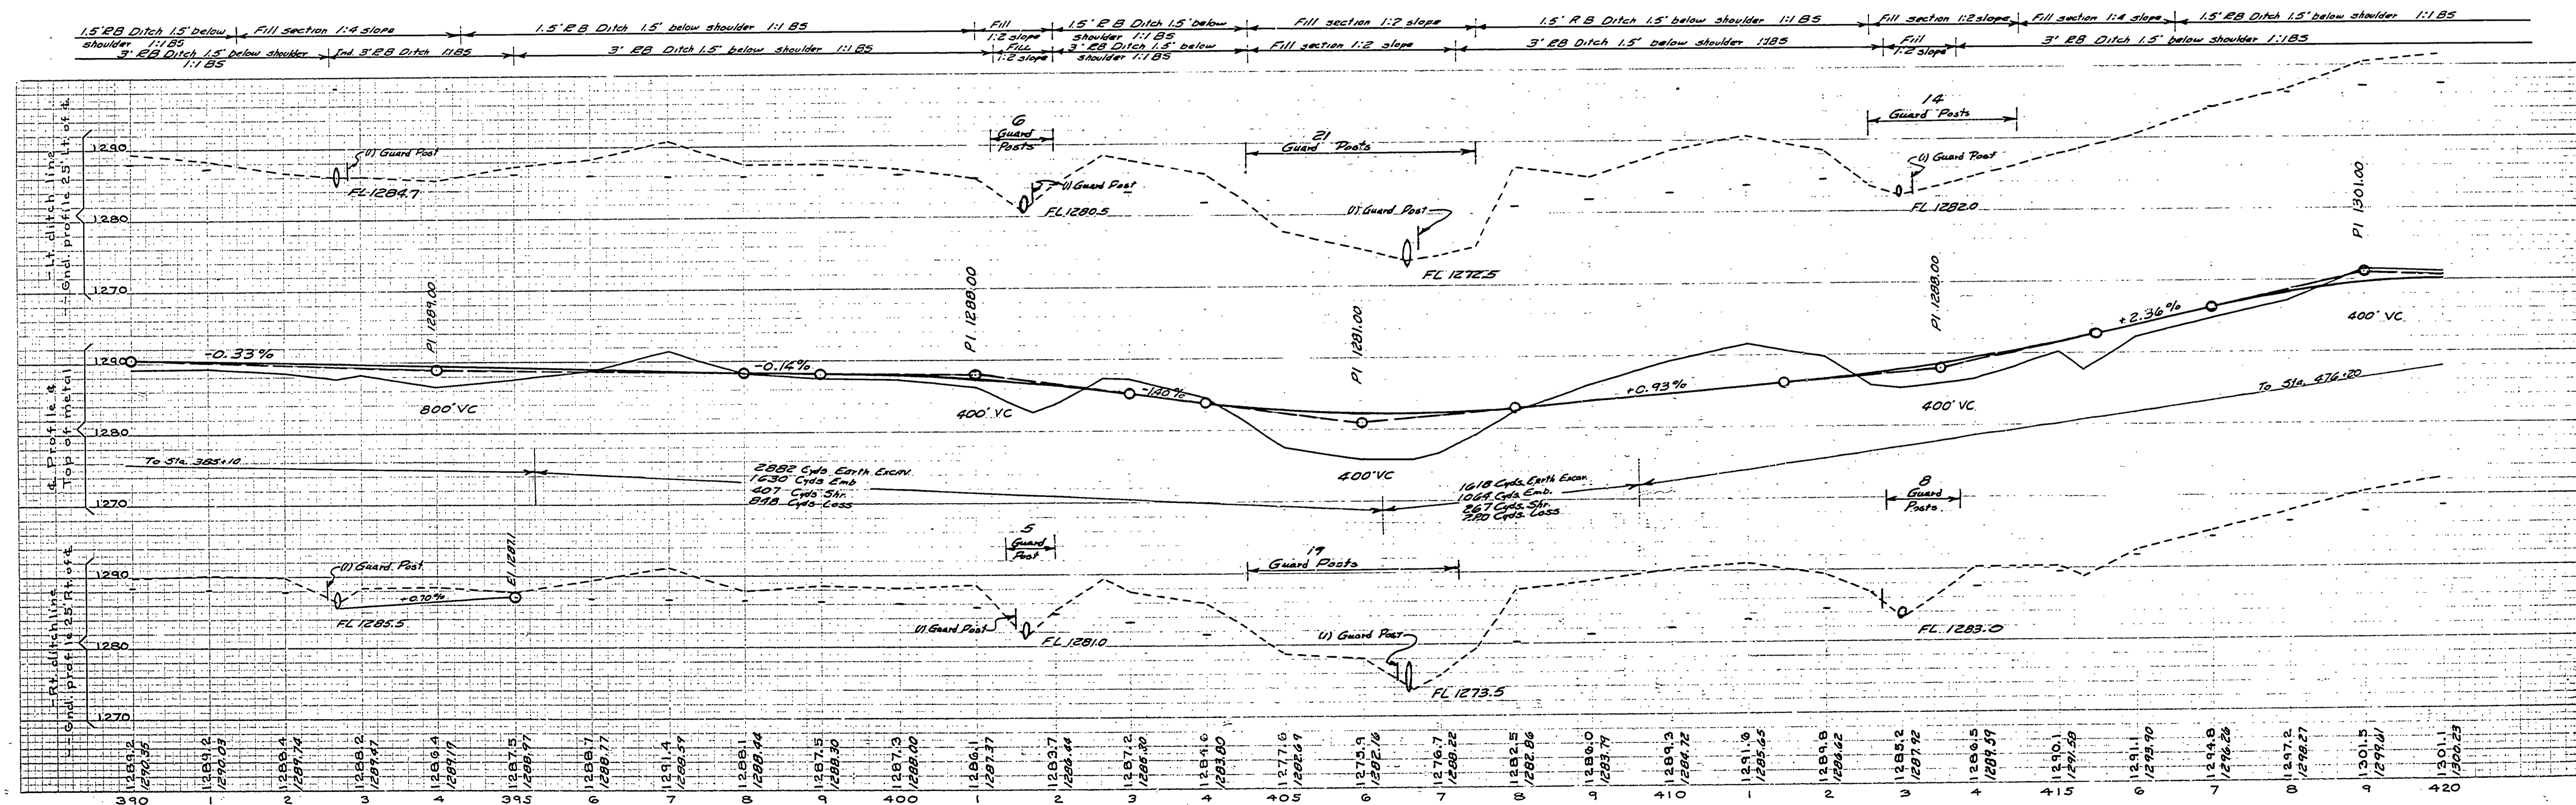 1.5' RB Ditch 1.5' below shoulder 1:1 BS
Fill section 1:4 slope
1.5' RB Ditch 1.5' below shoulder 1:1 BS
Fill 1:2 slope
1.5' RB Ditch 1.5' below shoulder 1:1 BS
Fill section 1:2 slope
1.5' RB Ditch 1.5' below shoulder 1:1 BS
Fill section 1:2 slope
Fill section 1:4 slope
1.5' RB Ditch 1.5' below shoulder 1:1 BS
3' RB Ditch 1.5' below shoulder 1:1 BS
Ind. 3' RB Ditch 1:1 BS
3' RB Ditch 1.5' below shoulder 1:1 BS
Fill 1:2 slope
3' RB Ditch 1.5' below shoulder 1:1 BS
Fill section 1:2 slope
3' RB Ditch 1.5' below shoulder 1:1 BS
Fill 1:2 slope
3' RB Ditch 1.5' below shoulder 1:1 BS
Lt. ditch line
Gnd. profile 25' Lt. of ℄
1290
1280
1270
(1) Guard Post
FL 1284.7
6
Guard
Posts
(1) Guard Post
FL 1280.5
21
Guard Posts
(1) Guard Post
FL 1272.5
14
Guard Posts
(1) Guard Post
FL 1282.0
PI 1301.00
℄ Profile &
Top of metal
1290
1280
1270
-0.33%
PI 1289.00
800' VC
-0.14%
PI 1288.00
400' VC
-1.40%
PI 1281.00
400' VC
+0.93%
PI 1288.00
400' VC
+2.36%
400' VC
To Sta. 385+10
2882 Cyds. Earth Excav.
1630 Cyds Emb
407 Cyds. Shr.
848 Cyds Loss
1618 Cyds. Earth Excav.
1064 Cyds. Emb.
267 Cyds. Shr.
To Sta. 476+20
Rt. ditch line
Gnd. profile 25' Rt. of ℄
1290
1280
1270
(1) Guard Post
+0.70%
El. 1287.1
FL 1285.5
5
Guard
Post
(1) Guard Post
FL 1281.0
19
Guard Posts
(1) Guard Post
FL 1273.5
8
Guard
Posts
FL 1283.0
1289.2 1290.35
1289.2 1290.03
1288.4 1289.74
1288.2 1289.47
1286.4 1289.19
1287.5 1288.97
1288.7 1288.77
1291.4 1288.59
1288.1 1288.44
1287.5 1288.30
1287.3 1288.00
1286.1 1287.37
1283.7 1286.44
1287.2 1285.20
1284.6 1283.80
1277.6 1282.69
1275.9 1282.16
1276.7 1288.22
1282.5 1282.86
1286.0 1283.79
1289.3 1284.72
1291.6 1285.65
1289.8 1286.62
1285.2 1287.92
1286.5 1289.59
1290.1 1291.58
1291.1 1293.90
1294.8 1296.26
1297.2 1298.27
1301.5 1299.61
1301.1 1300.23
390 1 2 3 4 395 6 7 8 9 400 1 2 3 4 405 6 7 8 9 410 1 2 3 4 415 6 7 8 9 420